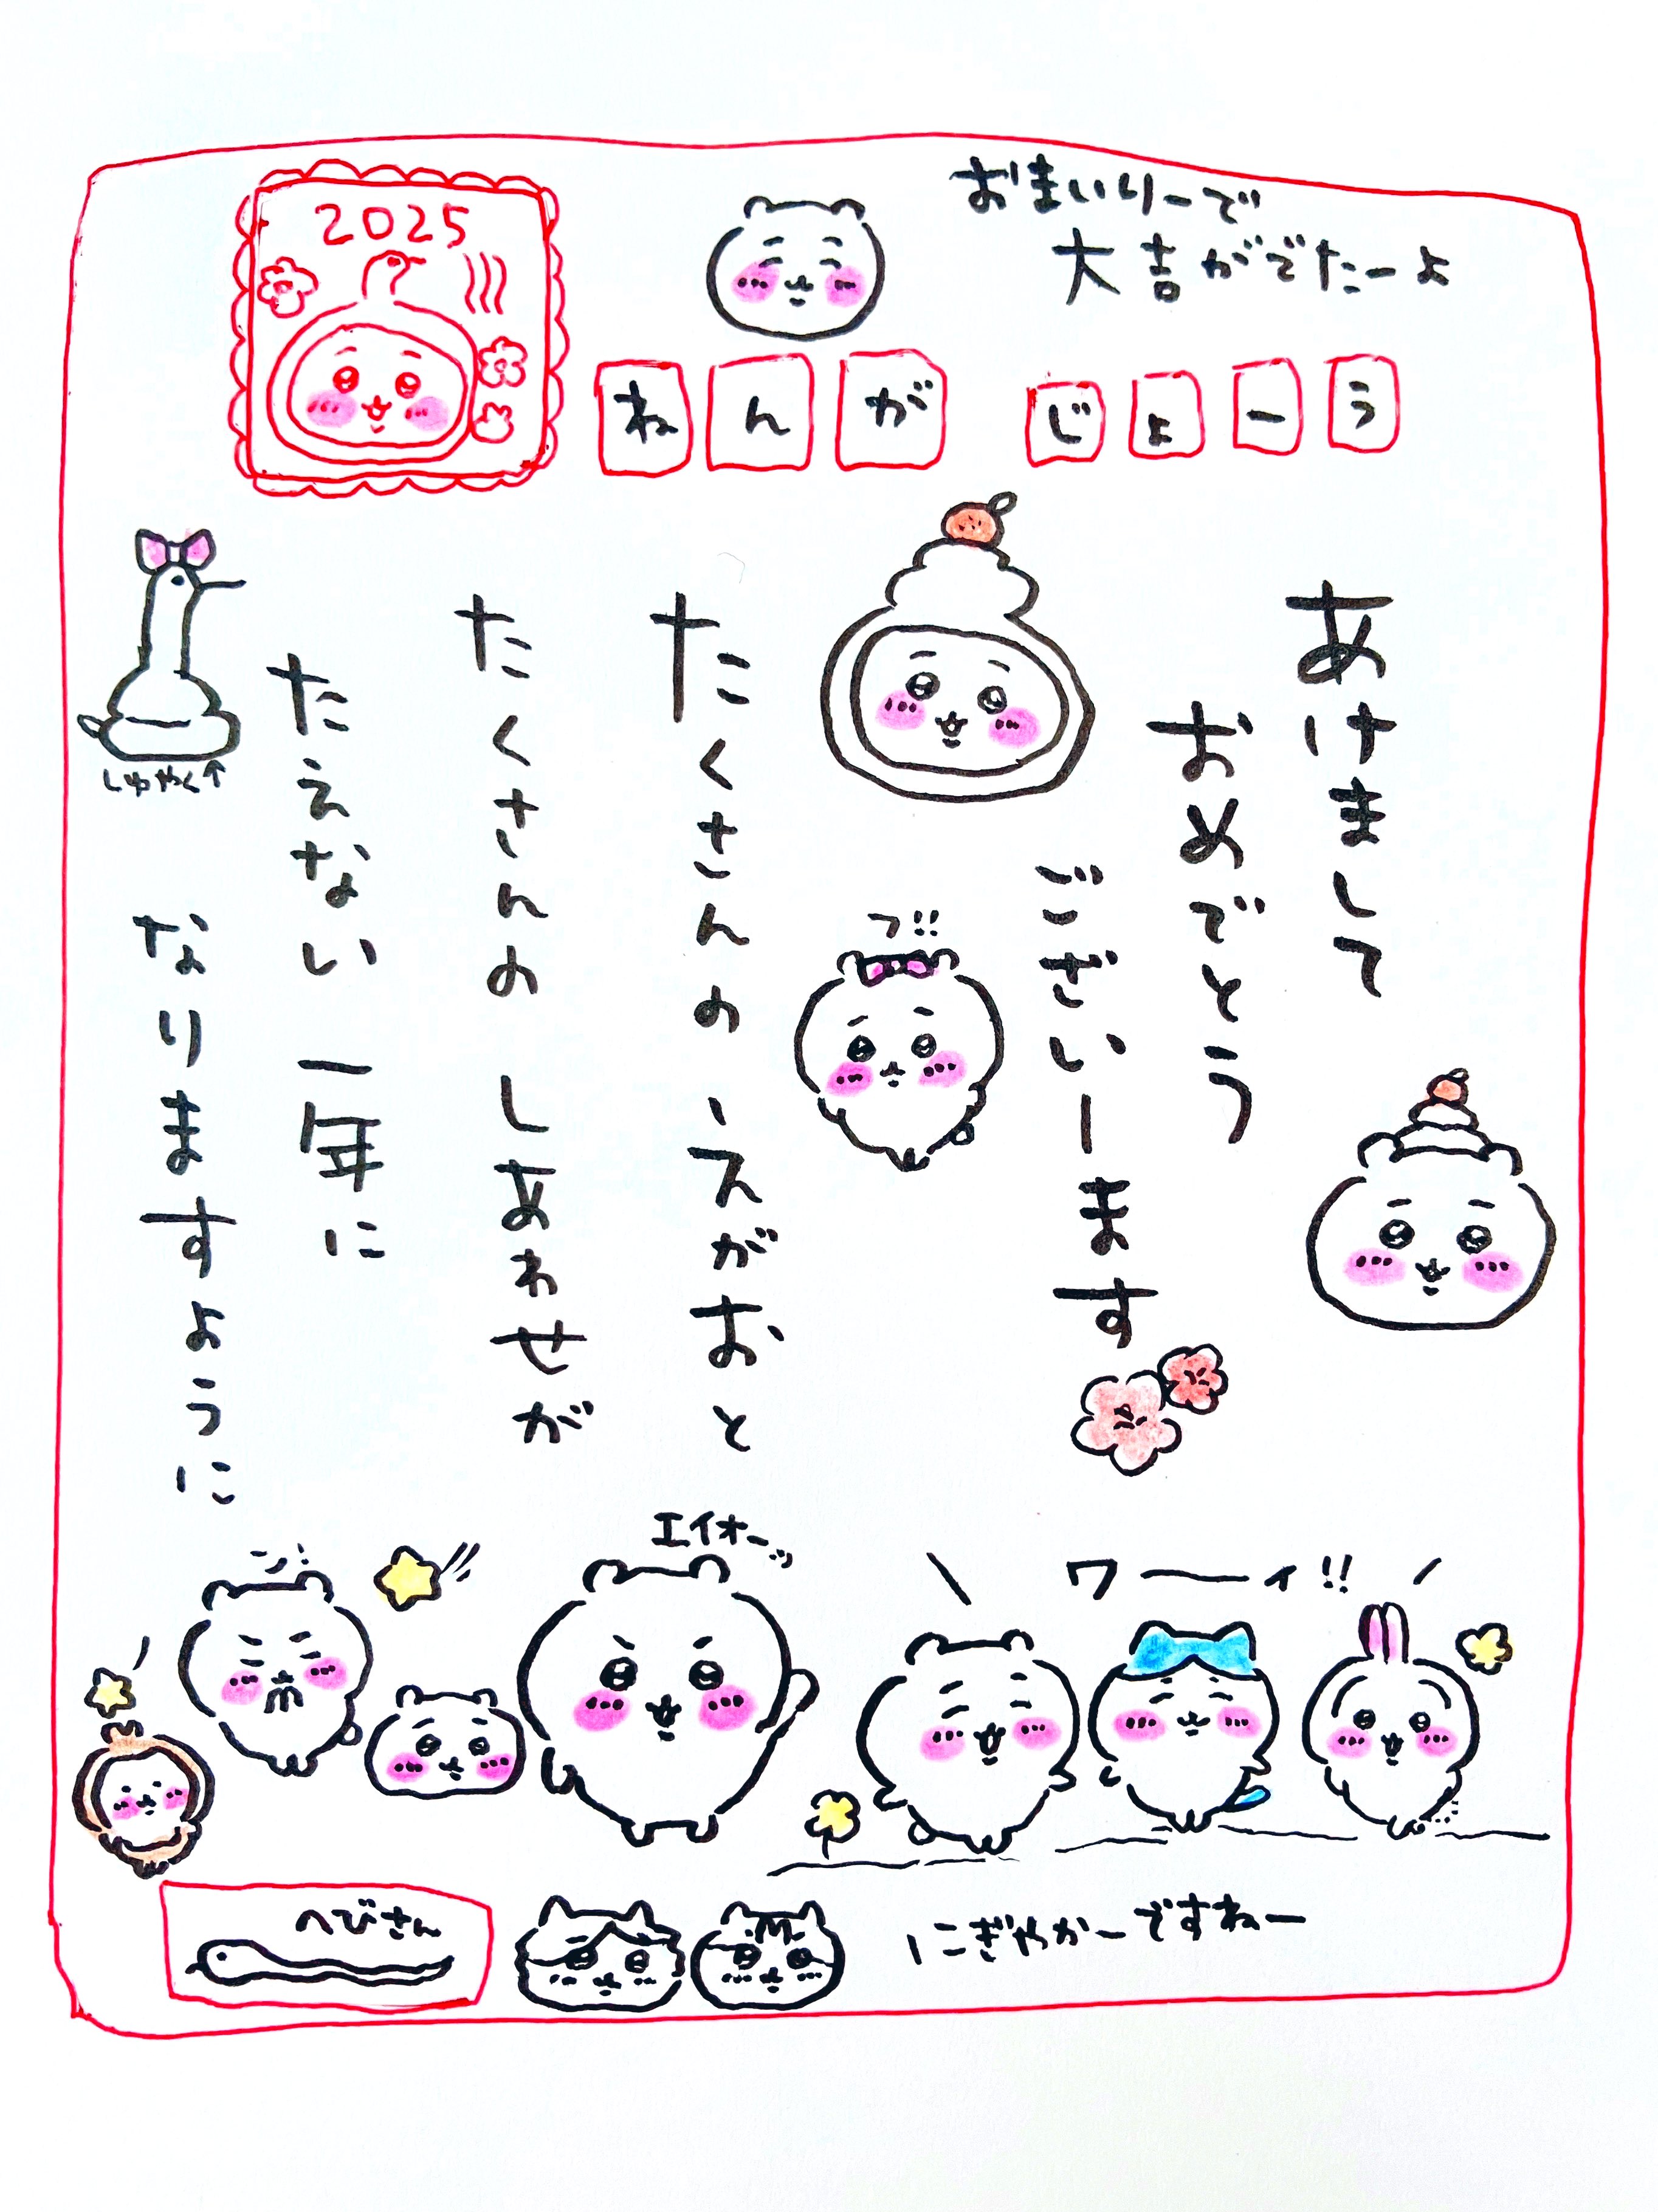 2025
おまいりーで
大吉がでたーよ
ねんが じょーう
あけまして
おめでとう
ございーます
たくさんの えがおと
たくさんの しあわせが
たえない 一年に
なりますように
しゅやく↑
フ!!
エイオーッ
ン!
ワーーィ!!
へびさん
にぎやかーですねー